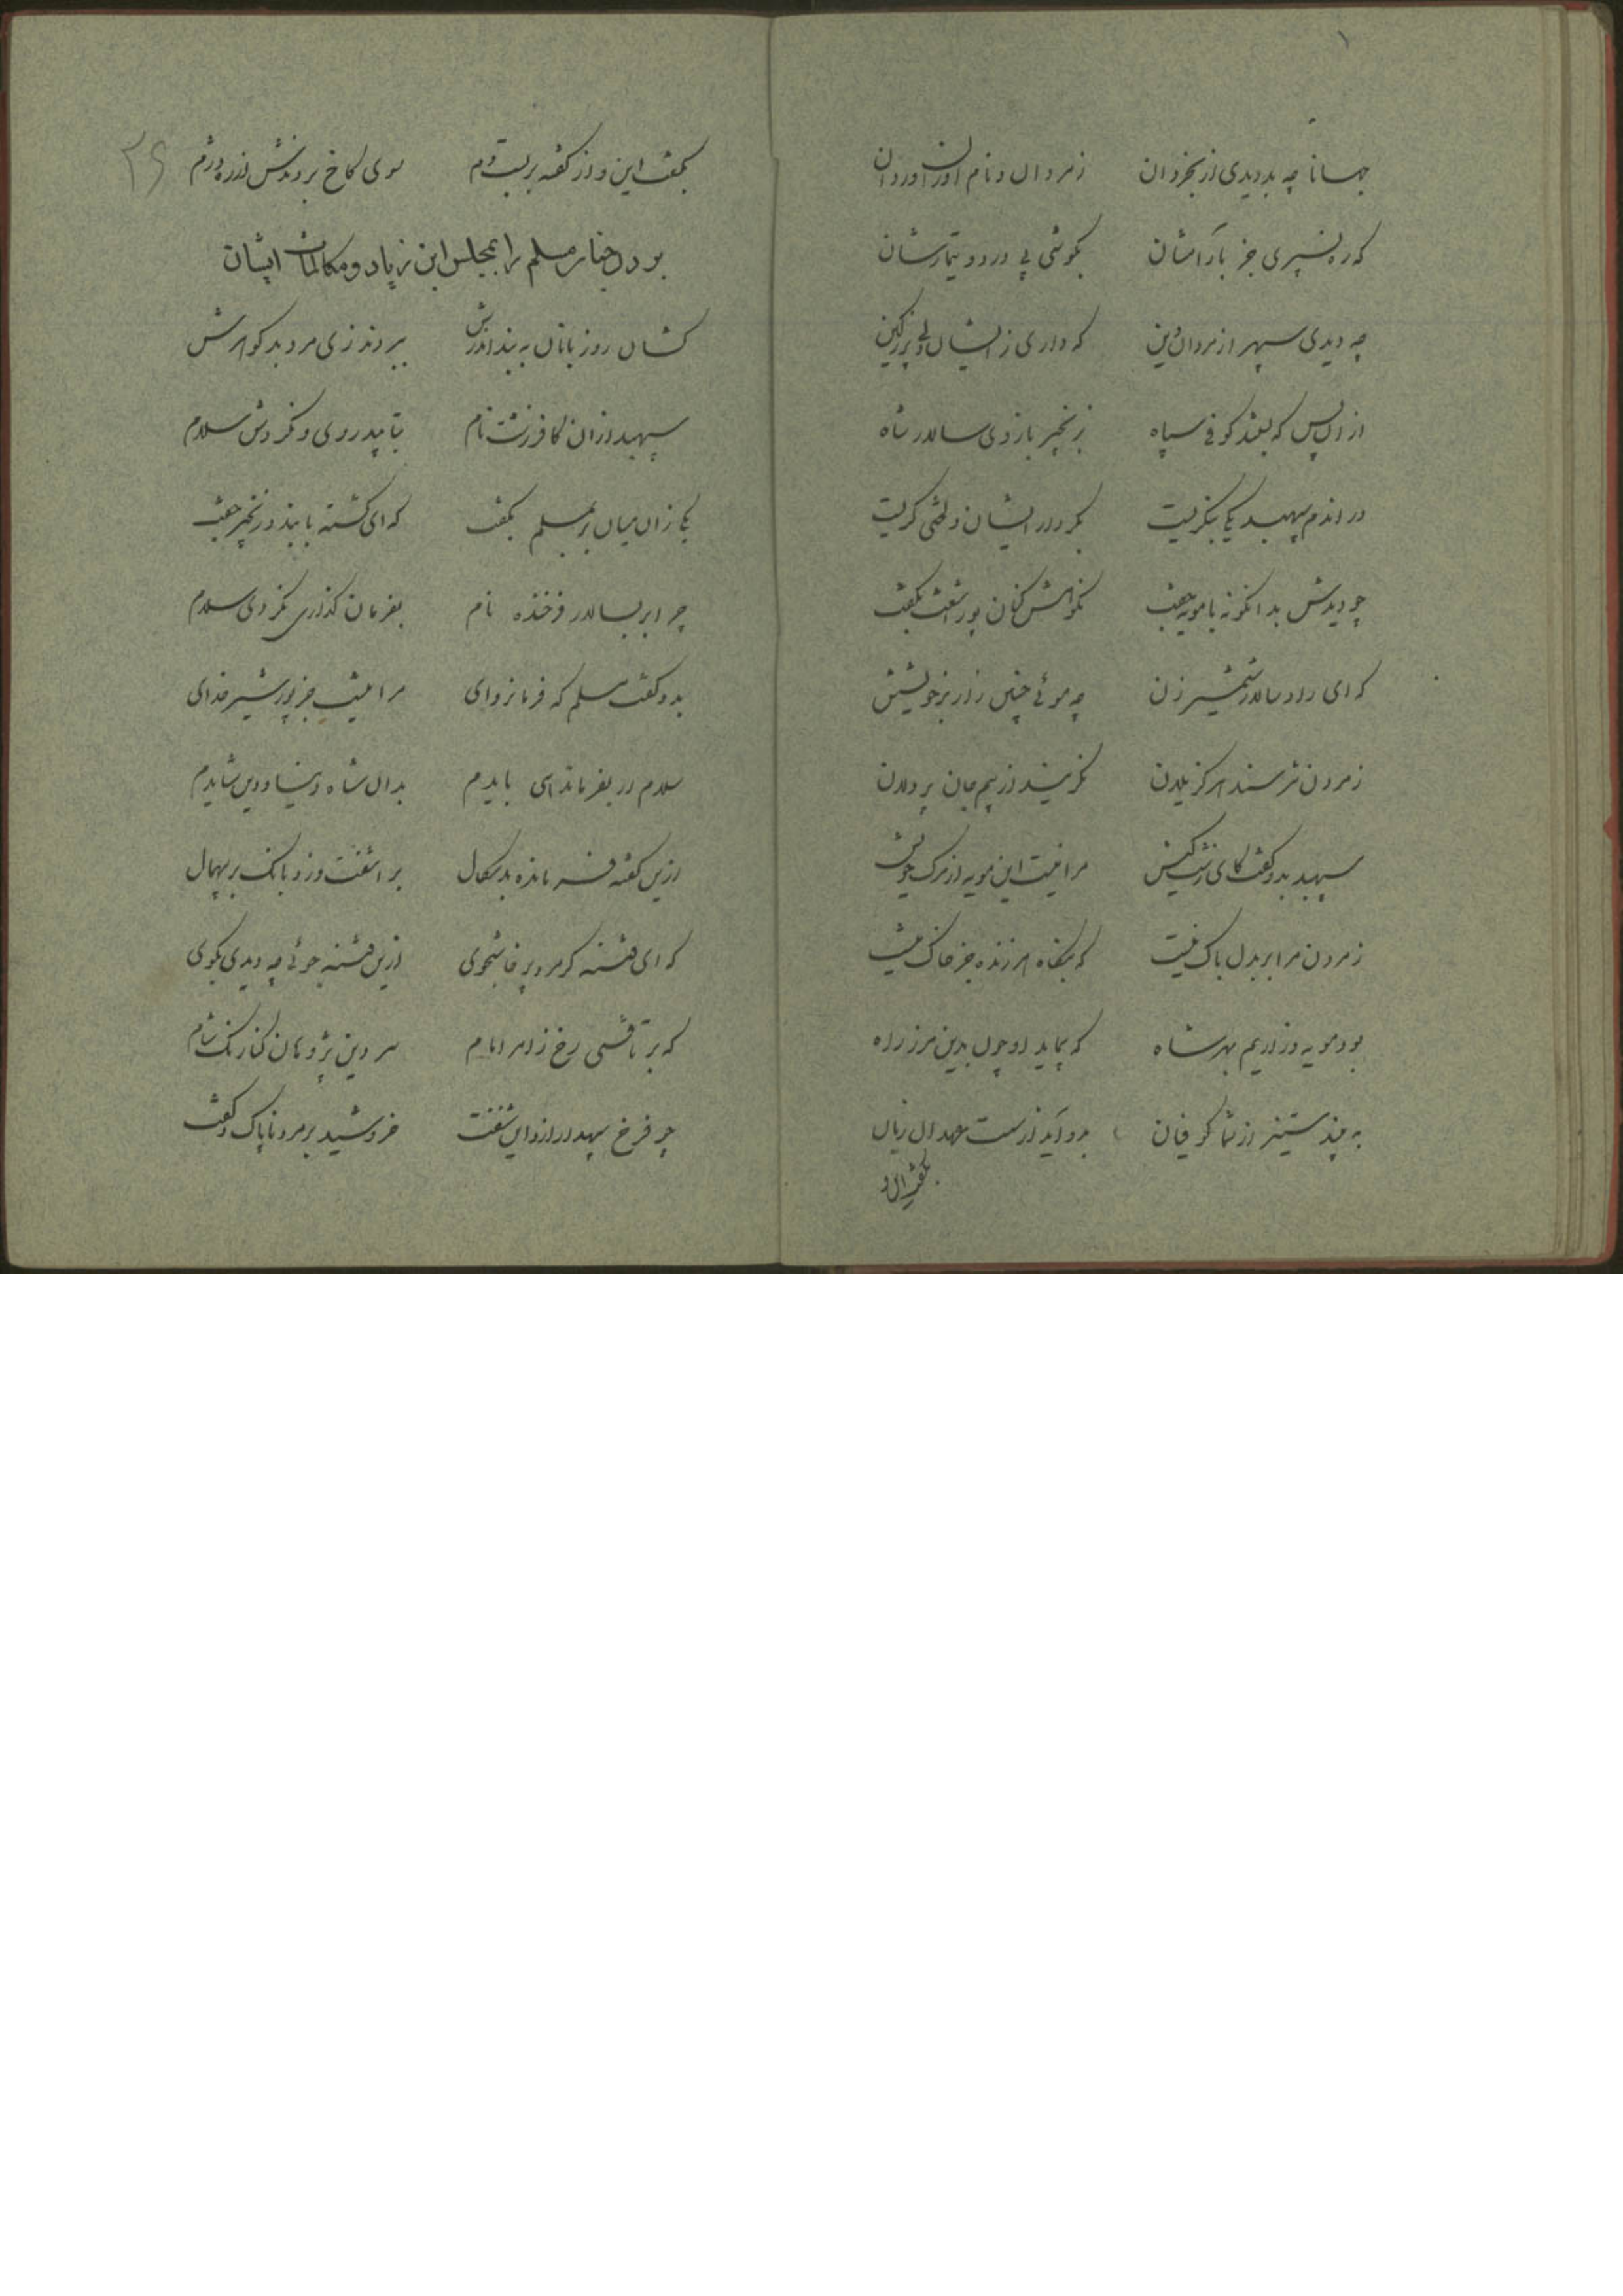 جهانا چه بد دیدی از بخردان    ز مردان و نام آوران و ردان
که ره نسپری جز بآرامشان    بکوشی پی درد و تیمارشان
چه دیدی سپهر از مردان دین    که داری ز ایشان دلی پر ز کین
از آن پس که بستند کوفی سپاه    بزنجیر بازوی سالار شاه
در آندم سپهبد یکی بنگریست    بکردار ایشان و لختی گریست
چو دیدش بدانگونه با مویه جفت    نکوهش کنان پور اشعث بگفت
که ای راد سالار شمشیر زن    چه موئی چنین زار بر خویشتن
ز مردن نترسند هرگز یلان    نگریند از بیم جان پردلان
سپهبد بدو گفت کای زشت کیش    مرا نیست این مویه از مرگ خویش
ز مردن مرا بر بدل باک نیست    که بنگاه هر زنده جز خاک نیست
بود مویه و زاریم بهر شاه    که پیماید او چون بدین مرز راه
به بیند ستیز از شما کوفیان    برو آید از دست عهد آن زیان
بگفت این و از گفته بر بست دم    سوی کاخ بردندش از ره دژم
۲۶
بردن جناب مسلم را بمجلس ابن زیاد و مکالمات ایشان
کشان روزبانان به بند اندرش    ببردند زی مرد بد گوهرش
سپهبد از آن کافر زشت نام    بتابید روی و نکردش سلام
یکی زان میان بر بمسلم بگفت    که ای گشته با بند و زنجیر جفت
چرا بر بسالار فرخنده نام    بفرمان گذاری نکردی سلام
بدو گفت مسلم که فرمانروای    مرا نیست جز پور شیر خدای
سلام ار بفرماندهی بایدم    بدان شاه دنیا و دین شایدم
ازین گفته فرمانده بدسگال    بر آشفت و زد بانگ بر بیهمال
که ای فتنه گر مرد پرخاشجوی    ازین فتنه جوئی چه دیدی بگوی
که بر تافتی رخ ز امر امام    سر دین پژوهان کنارنگ شام
چو فرخ سپهدار ازو این شنفت    خروشید بر مرد ناپاک و گفت